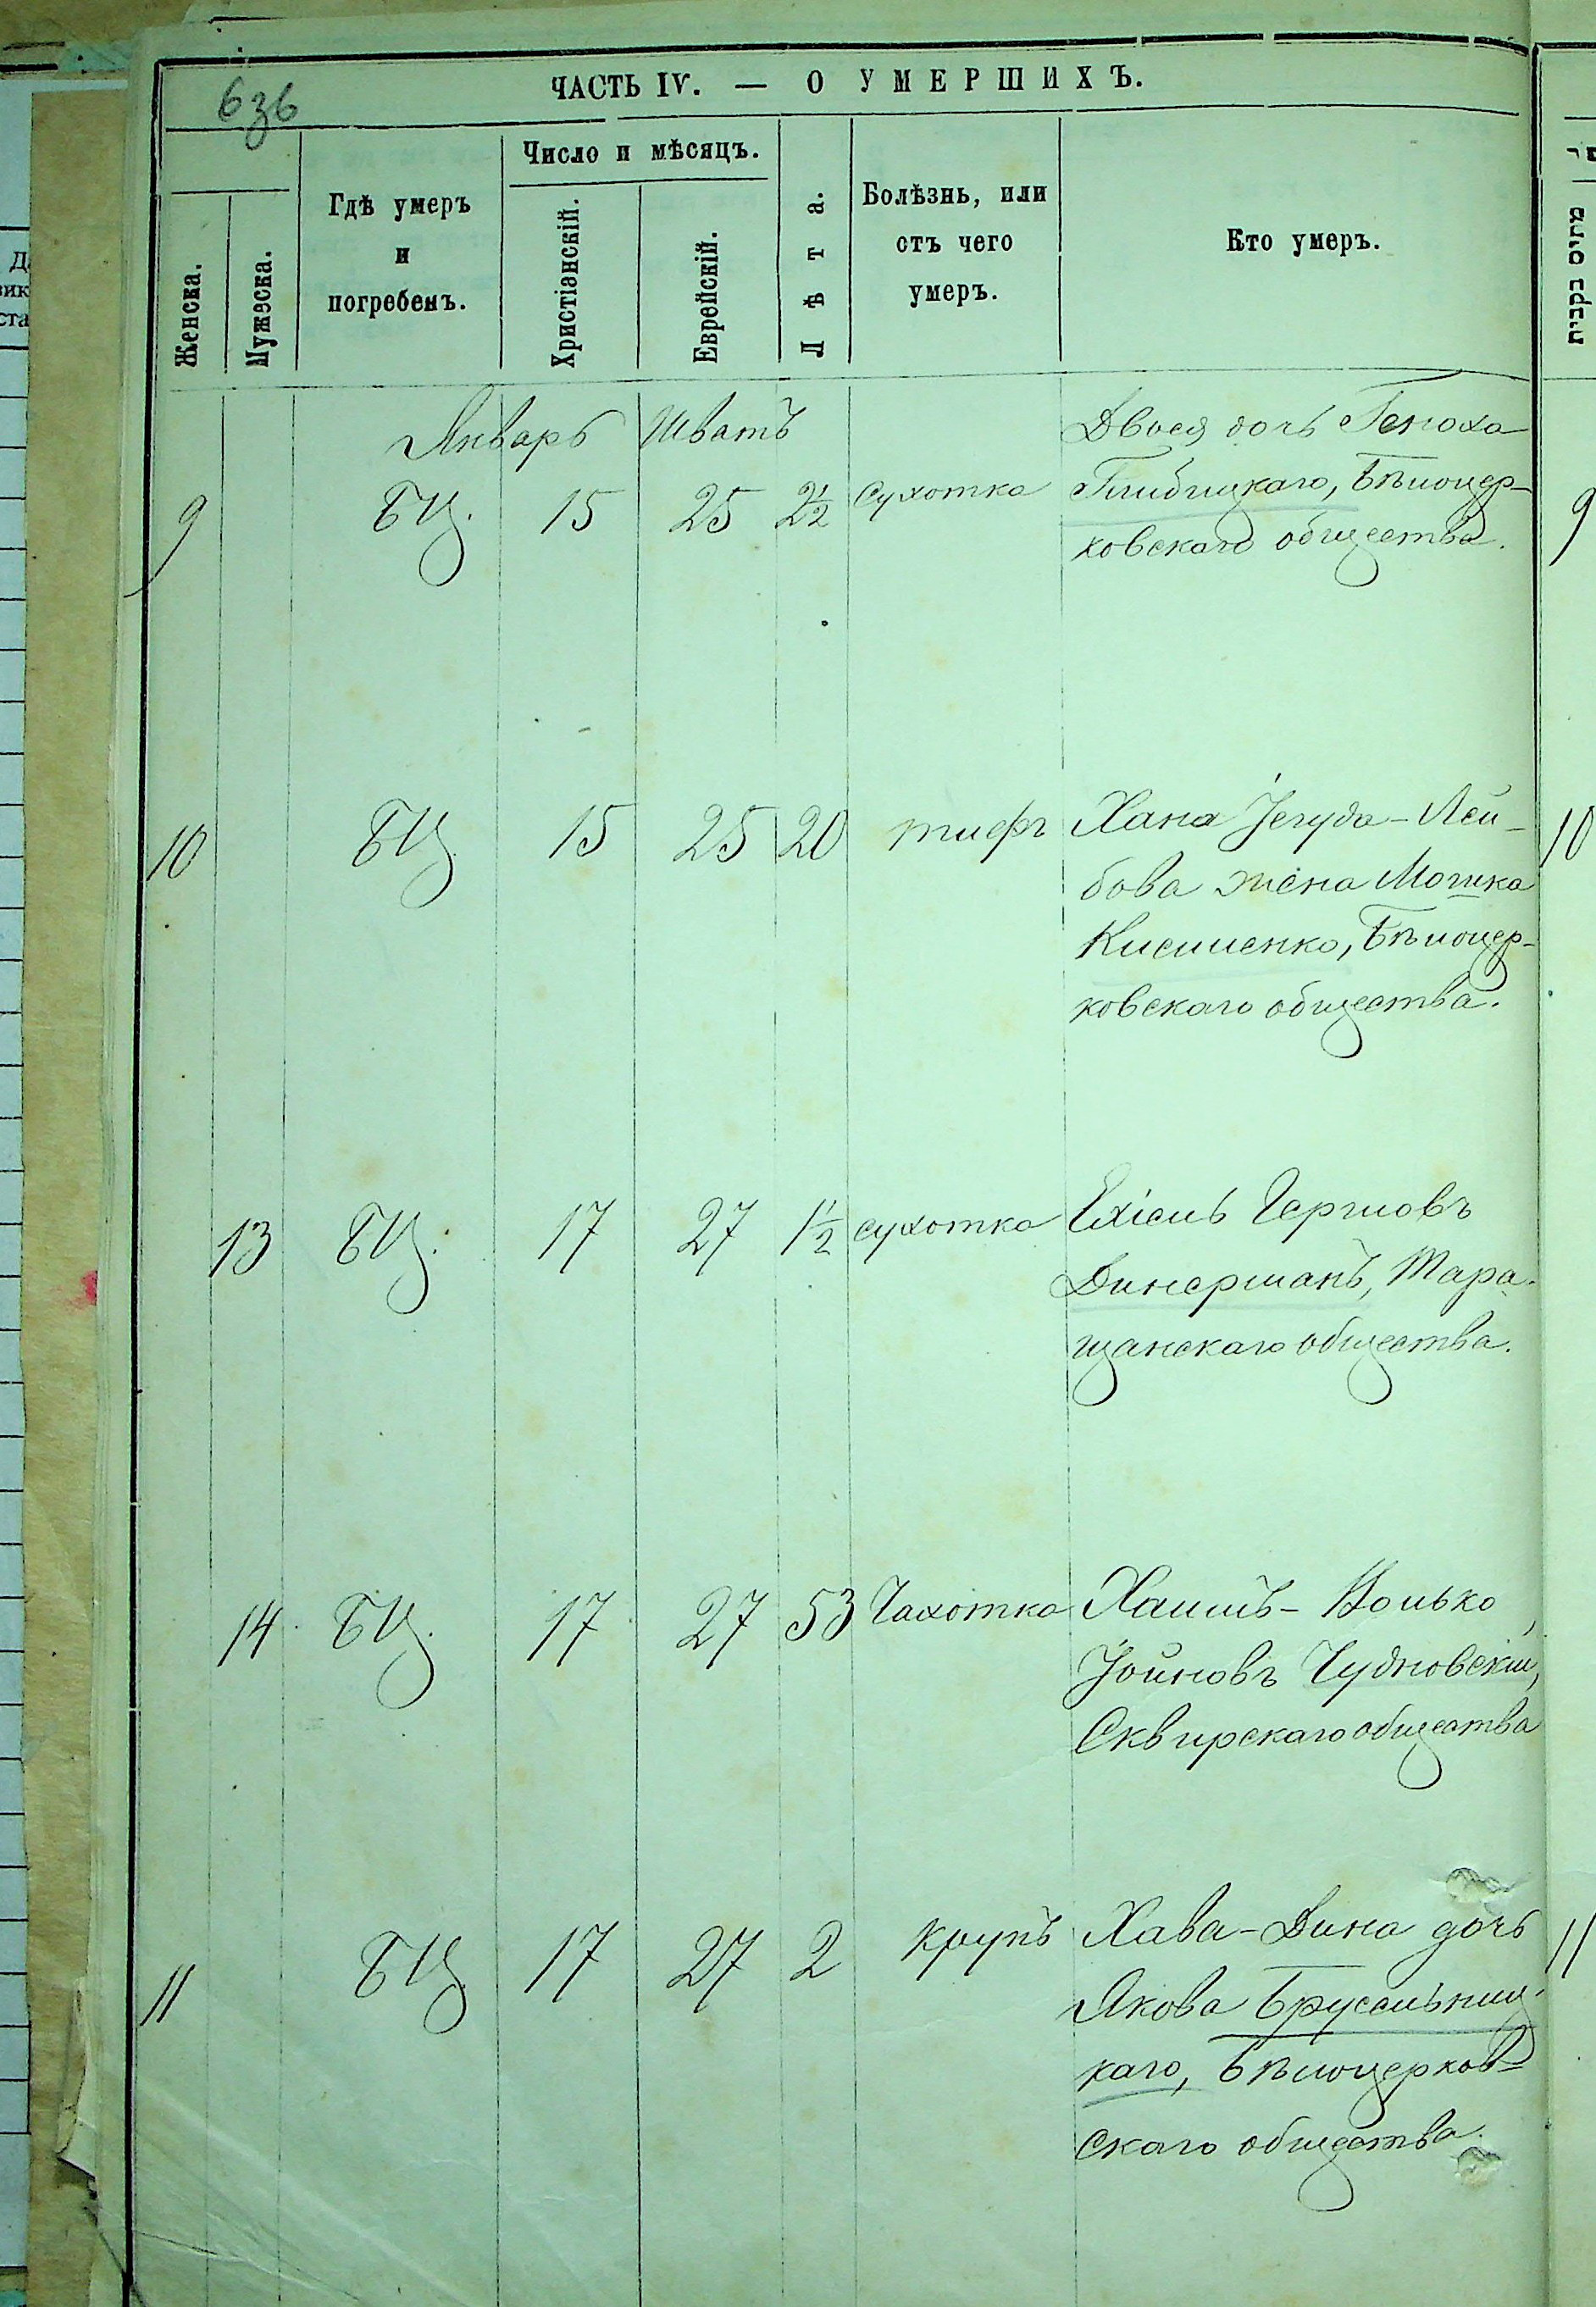 636
ЧАСТЬ IV. — О УМЕРШИХЪ.
Женска.
Мужеска.
Гдѣ умеръ
и
погребенъ.
Число и мѣсяцъ.
Христіянскій.
Еврейскій.
Лѣта.
Болѣзнь, или
отъ чего
умеръ.
Кто умеръ.
מתים נקבות
Январь Шватъ
Двося дочь Геноха
9 БЦ. 15 25 2½ Сухотка Глибицкаго, Бѣлоцер- 9
ковскаго общества.
10 БЦ 15 25 20 тифъ Хана Іегуда-Лей- 10
бова жена Мошка
Кисиленко, Бѣлоцер-
ковскаго общества.
13 БЦ. 17 27 1½ сухотка Ехіель Гершовъ
Динерманъ, Тара-
щанскаго общества.
14 БЦ. 17 27 53 Чахотка Хаимъ-Волько
Іойновъ Чудновскій,
Сквирскаго общества
11 БЦ 17 27 2 крупъ Хава-Дина дочь 11
Якова Брусильниц-
каго, Бѣлоцерков-
скаго общества.